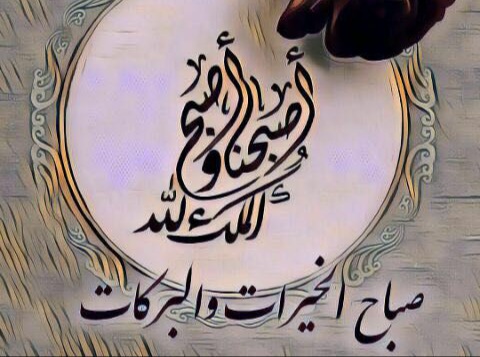 أصبحنا وأصبح
الملك لله
صباح الخيرات والبركات